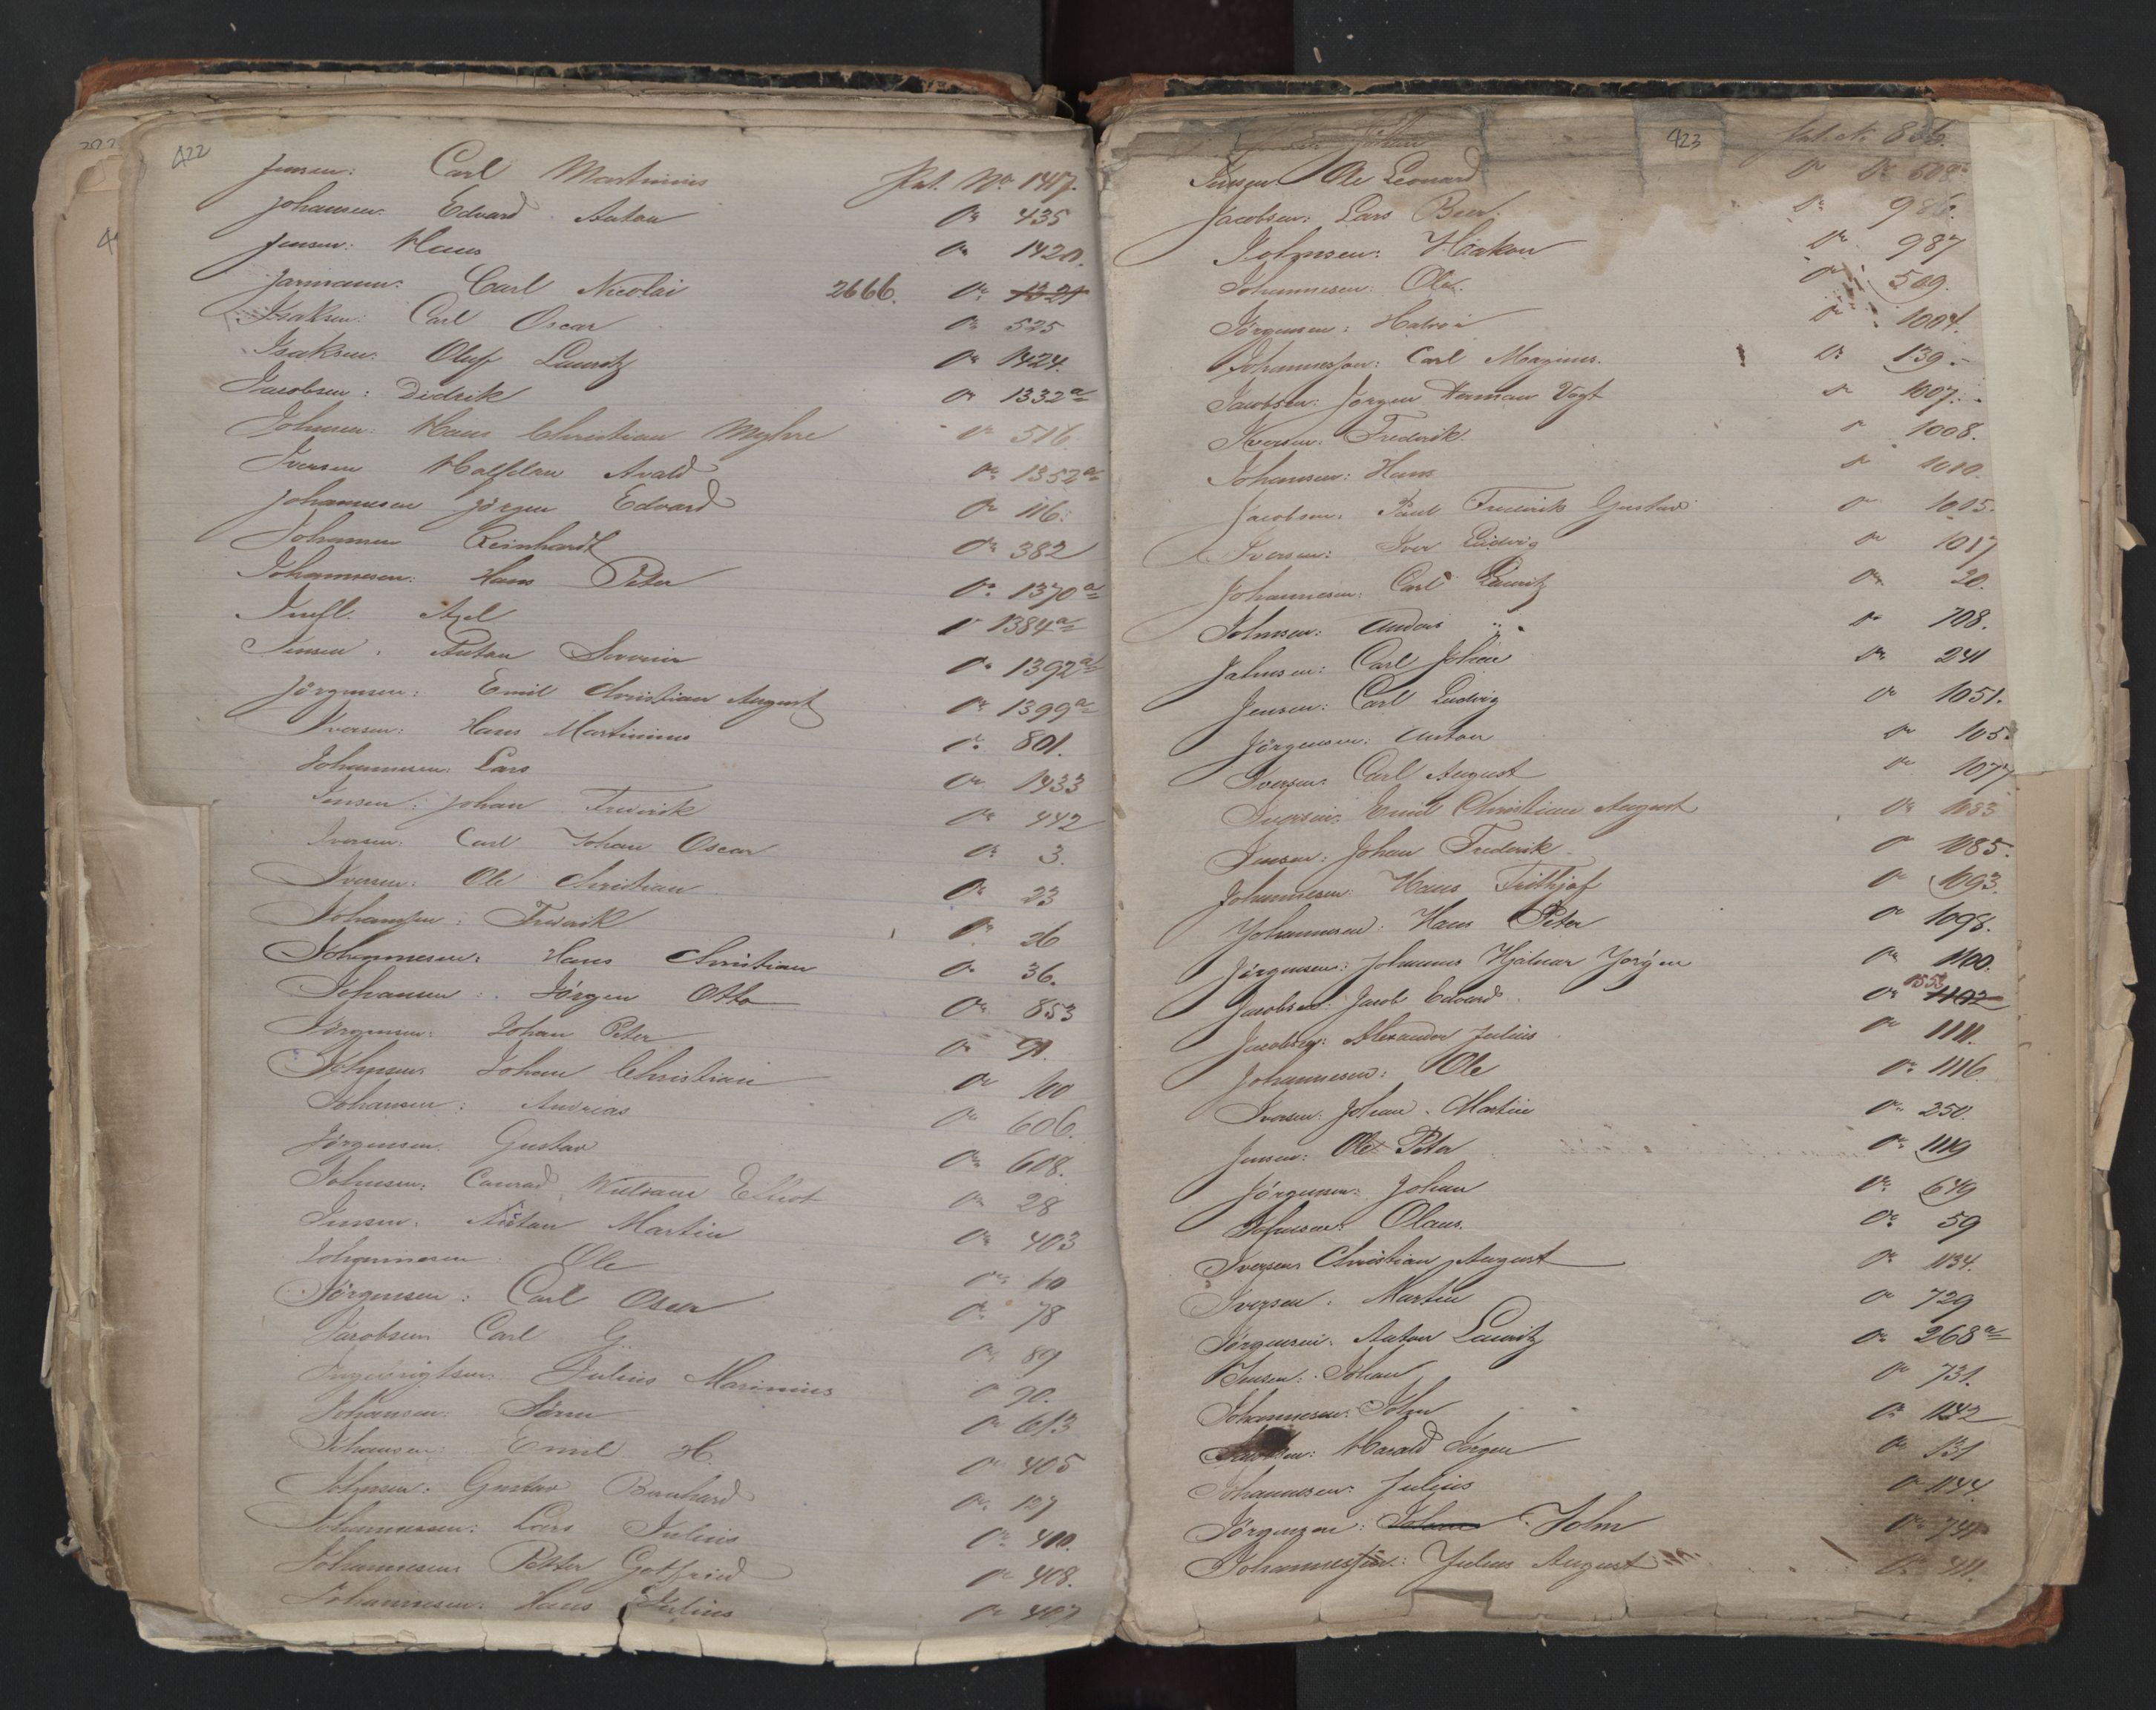 422
Jensen: Carl Martinius Pat. No 1417.
Johansen: Edvard Anton Do 435
Jensen: Hans Do 1420.
Jarmann: Carl Nicolai 2666. Do 1321
Isaksen: Carl Oscar Do 525
Isaksen: Oluf Lauritz Do 1424.
Jacobsen: Didrik Do 1332 a
Johnsen: Hans Christian Myhre Do 516
Iversen Halfdan Avald Do 1352 a
Johannesen Jörgen Edvard Do 116.
Johansen Reinhardt Do 382
Johannesen: Hans Peter Do 1370 a
Axel Do 1384 a
Jensen. Anton Severin Do 1392 a
Jörgensen: Emil Christian August Do 1399 a
Iversen: Hans Martinius Do 801.
Johannesen: Lars Do 1433
Jensen: Johan Frederik Do 442
Iversen: Carl Johan Oscar Do 3.
Iversen: Ole Christian Do 23
Johansen: Frederik Do 26
Johannesen: Hans Christian Do 36.
Johansen: Jörgen Otto Do 853
Jörgensen: Johan Peter Do 91.
Johnsen: Johan Christian Do 100
Johansen: Andreas Do 606.
Jörgensen. Gustav Do 608.
Johnsen: Conrad Elliot Do 28
Jensen: Anton Martin Do 403
Johannesen: Ole Do 60
Jörgensen: Carl Oscar Do 78
Jacobsen Carl G. Do 89
Ingebrigtsen Julius Marinius Do 90.
Johansen: Sören Do 613
Johansen: Emil H. Do 405
Johnsen: Gustav Bernhard Do 127
Johannesen: Lars Julius Do 400.
Johannesen Petter Gotfried Do 408.
Johannesen: Hans Julius Do 407
423
Johan Pat. No 836.
Jensen Ole Leonard Do 608
Jacobsen: Lars Beer. Do 986.
Johnsen: Haakon Do 987
Johannesen: Ole. Do 509.
Jörgensen: Halvor Do 1004.
Johannessen: Carl Magnus. Do 139.
Jacobsen: Jörgen Herman Vogt Do 1007.
Iversen: Frederik. Do 1008.
Johansen: Hans Do 1010.
Jacobsen. Paul Frederik Gustav Do 1005.
Iversen: Iver Ludvig Do 1017
Johannesen: Carl Lauritz Do 20.
Johnsen: Anders Do 708.
Johnsen: Carl Johan Do 241
Jensen: Carl Ludvig Do 1051.
Jörgensen: Anton Do 105.
Iversen. Carl August Do 1077
Iversen: Emil Christian August Do 1083
Jensen: Johan Frederik Do 1085.
Johannesen: Hans Frithjof Do 1093.
Johannesen: Hans Peter Do 1098.
Jörgensen: Johannes Hjalmar Jörgen Do 1100.
Jacobsen: Jacob Edvard Do 1553 1102
Jacobsen: Alexander Julius Do 1111.
Johannesen: Ole Do 1116
Iversen: Johan Martin Do 250.
Jensen: Ole Peter Do 1119
Jörgensen: Johan Do 649
Johnsen: Olaus. Do 59
Iversen Christian August Do 1134.
Iversen: Martin Do 729
Jörgensen. Anton Lauritz Do 268 a
Jensen: Johan Do 731.
Johannesen: John Do 1142
Harald Jörgen Do 131
Johannesen: Julius Do 1144.
Jörgensen: Johan John Do 741
Johannessen: Julius August Do 411.